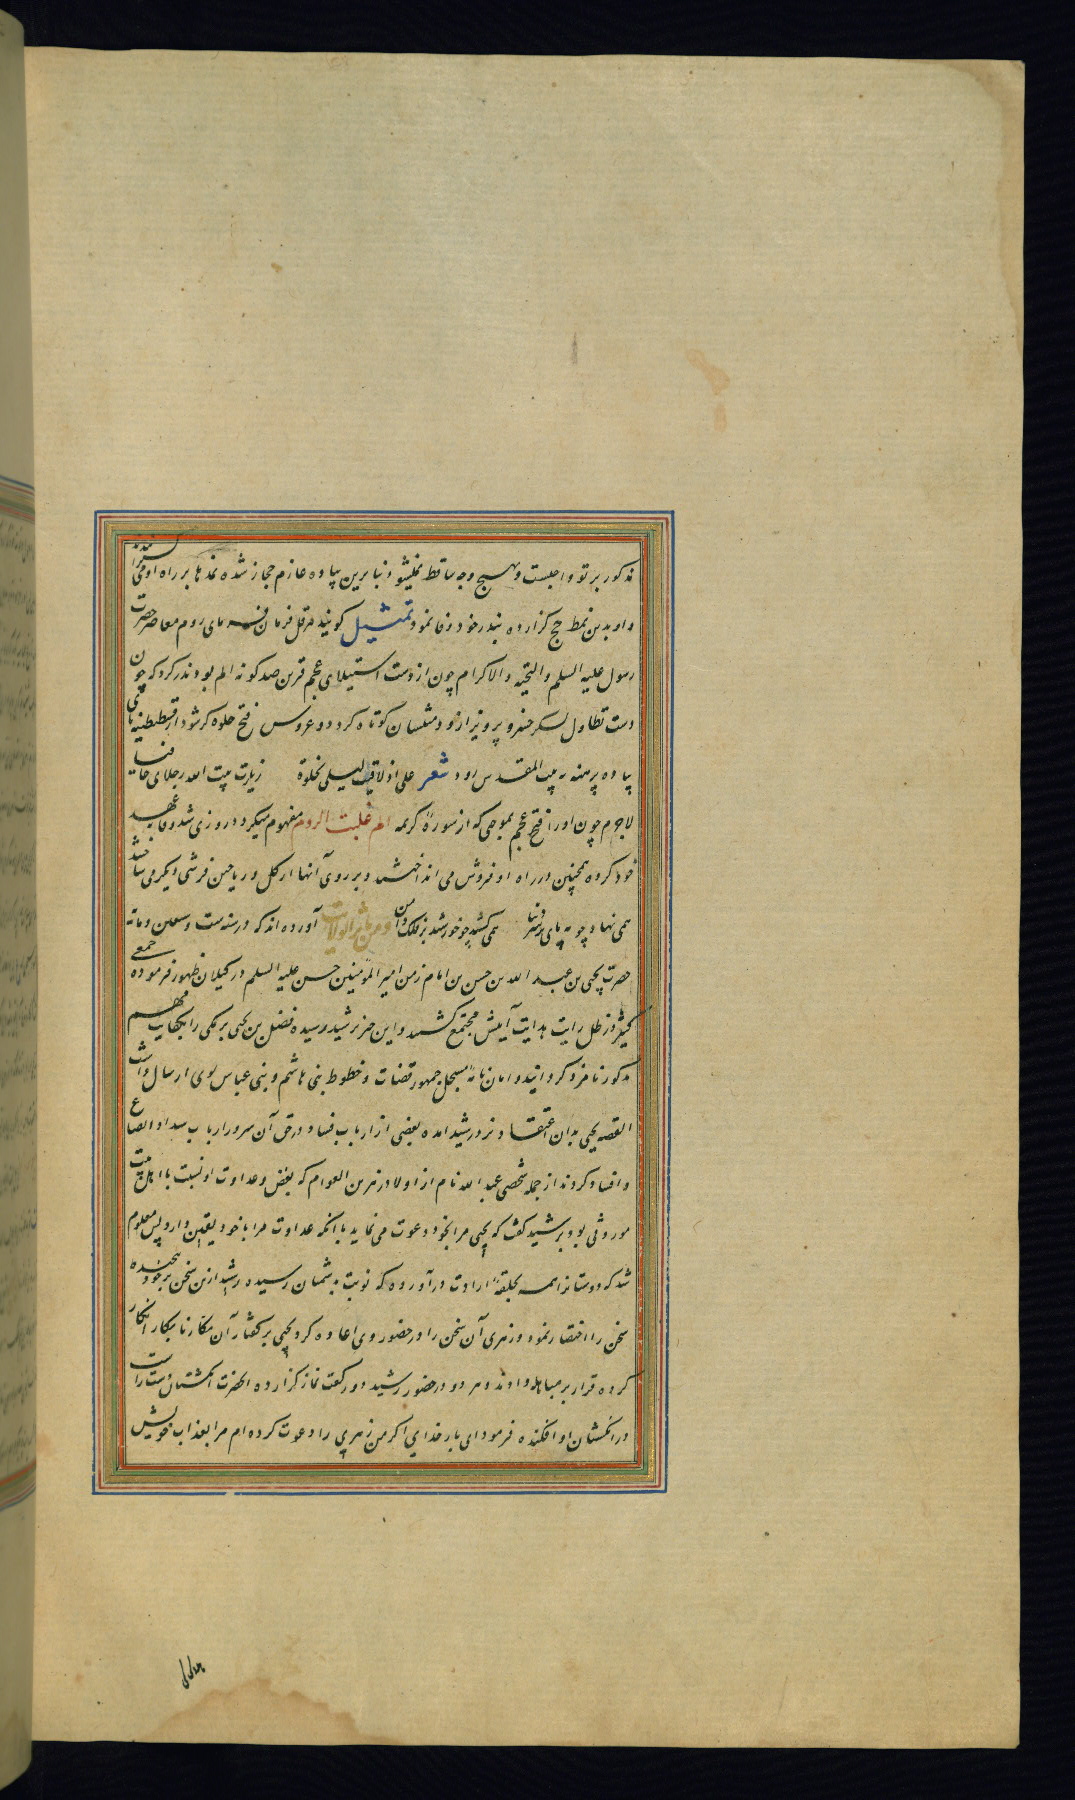 مذکور بر تو واجبست و بهیچ وجه ساقط نمیشود بنابرین پیاده عازم حجاز شده نمدها بر راه او می کستردند
و او بدین نمط حج کزارده بنذر خود وفا نمود تمثیل کویند هرقل فرمان فرمای روم معاصر حضرت
رسول علیه السلم والتحیه والاکرام چون از دست استیلای عجم قرین صد کونه الم بود نذر کرد که چون
دست تطاول لشکر خسرو پرویز از ودمشسان کوتاه کردد و عروس فتح جلوه کر شود از قسطنطنیه با پای
پیاده برهنه به بیت المقدس رود شعر علی اذ لاقیت لیلی بخلوة زیارت بیت الله رجلای حافیا
لاجرم چون او را فتح عجم بموجبی که از سوره کریمه الم غلبت الروم مفهوم میکردد روزی شد وفا بعهد
خود کرده همچنین در راه او فروش می انداختند و بر روی آنها از کل و ریاحین فرشی دیکر می ساختند
همی نهاد چو به پای بر سر دنیا همی کشید چو خورشید بر فلک دامن و من مآثر الولایت آورده اند که در سنه ست و سبعین و مایه
حضرت یحیی بن عبد الله بن حسن بن امام زمن امیر المؤمنین حسن علیه السلم در کیلان ظهور فرموده جمعی
کثیر در ظل رایت هدایت آیتش مجتمع کشتند و این خبر برشید رسیده فضل بن یحیی برمکی را بکفایت مهم
مذکور نامزد کردانید و امان نامه مسجل بجمهور قضات و خطوط بنی هاشم و بنی عباس بوی ارسال داشت
القصه یحیی بدان اعتقاد نزد رشید آمده بعضی از ارباب فساد در حق آن سرور ارباب سداد
و افساد کردند از جمله شخصی عبد الله نام از اولاد زبیر بن العوام که بغض و عداوت او نسبت با اهل بیت
موروثی بود برشید کفت که یحیی مرا بخود دعوت می نماید با آنکه عداوت مرا با خود یقین دارد پس معلوم
شد که دوستانرا همه بحلقه ارادت درآورده که نوبت بدشمنان رسیده رشید ازین سخن بر خود پیچیده
سخن را اختصار نمود و زبیری آن سخن را در حضور وی اعاده کرد یحیی بر کفتار آن مکار نابکار انکار
کرده قرار بر مباهله دادند و هر دو در حضور رشید دو رکعت نماز کزارده آنحضرت انکشتان دست راست
در انکشتان او افکنده فرمود ای بار خدای اکر من زبیری را دعوت کرده ام مرا بعذاب خویش